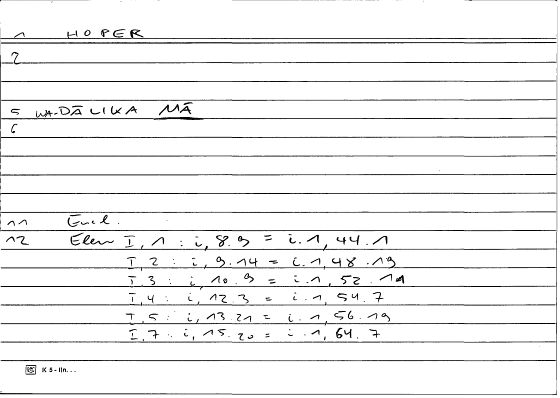 1 HOPER
2
5 WA-DĀLIKA MĀ
6
11 Eucl.
12 Elem I, 1 : i, 8.9 = i.1, 44.1
I, 2 : i, 9.14 = i.1, 48.19
I, 3 : i, 10.9 = i.1, 52.19
I, 4 : i, 12.3 = i.1, 54.7
I, 5 : i, 13.21 = i.1, 56.19
I, 7 : i, 15.20 = i.1, 64.7
K 5 - IIn...